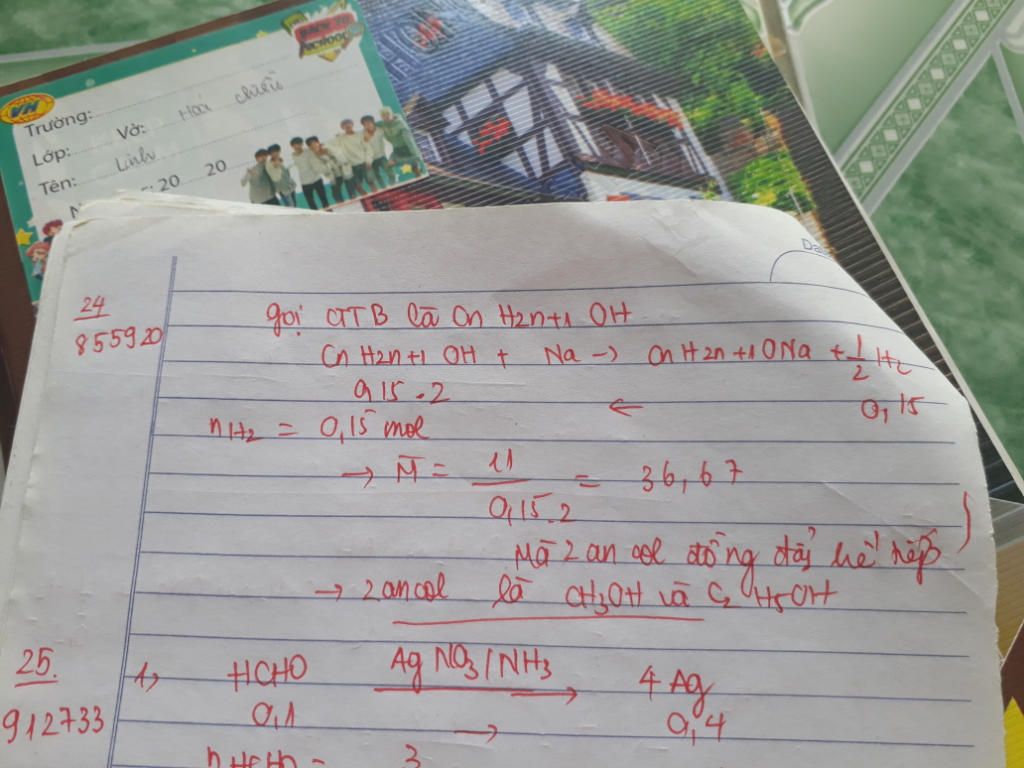 BACK TO
SCHOOL
VH
Trường:
Vở: Hoá chiều
Lớp:
Tên: Linh
20 20
Da
24
855920
gọi CTTB là CnH2n+1 OH
CnH2n+1 OH + Na → CnH2n+1ONa + 1/2 H2
0,15.2 ← 0,15
nH2 = 0,15 mol
→ M̄ = 11 / 0,15.2 = 36,67
Mà 2 ancol đồng đẳng kế tiếp
→ 2 ancol là CH3OH và C2H5OH
25.
912733
1, HCHO AgNO3/NH3 → 4Ag
0,1 → 0,4
nHCHO = 3